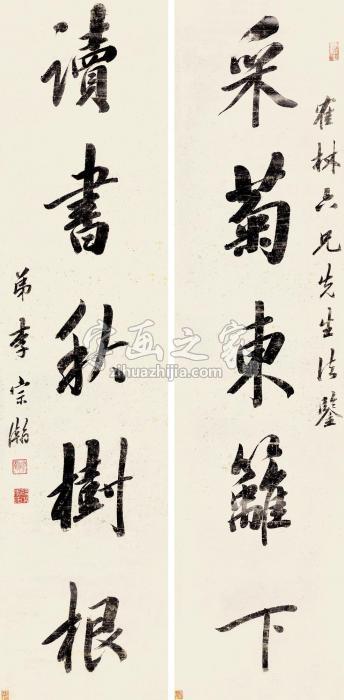 崔林六兄先生法鑒
采菊東籬下
讀書秋樹根
弟李宗瀚
字画之家
zihuazhijia.com